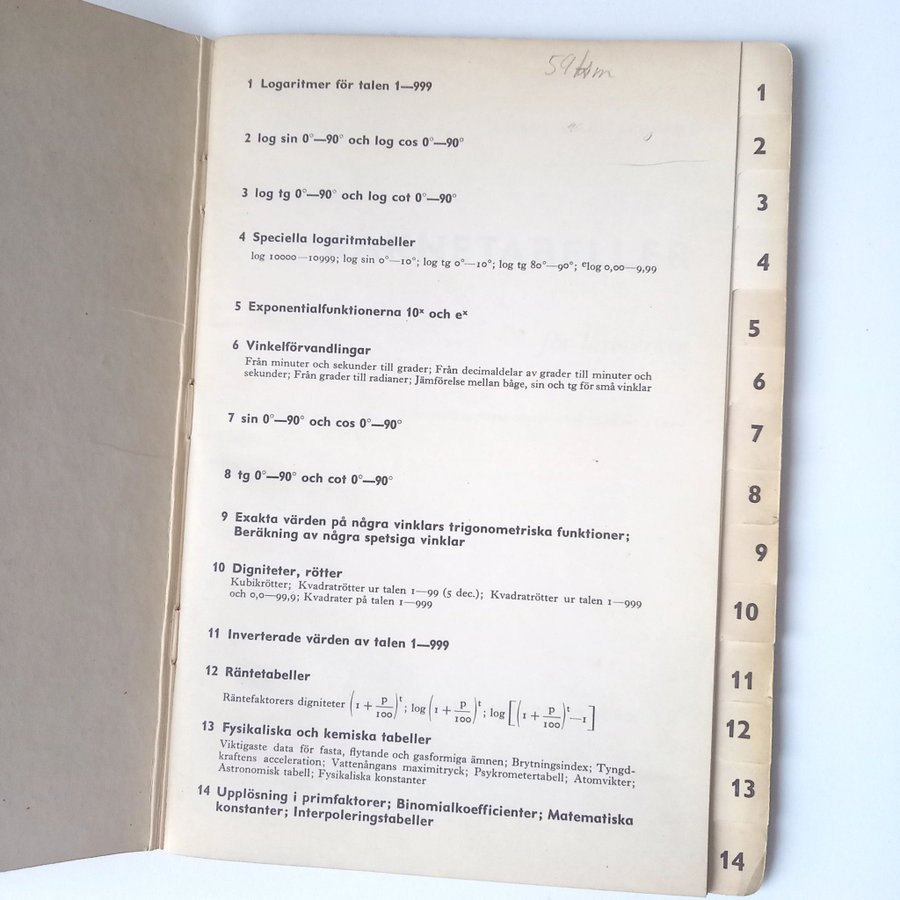 1 Logaritmer för talen 1—999
2 log sin 0°—90° och log cos 0°—90°
3 log tg 0°—90° och log cot 0°—90°
4 Speciella logaritmtabeller
log 10000—10999; log sin 0°—10°; log tg 0°—10°; log tg 80°—90°; ᵉlog 0,00—9,99
5 Exponentialfunktionerna 10ˣ och eˣ
6 Vinkelförvandlingar
Från minuter och sekunder till grader; Från decimaldelar av grader till minuter och
sekunder; Från grader till radianer; Jämförelse mellan båge, sin och tg för små vinklar
7 sin 0°—90° och cos 0°—90°
8 tg 0°—90° och cot 0°—90°
9 Exakta värden på några vinklars trigonometriska funktioner;
Beräkning av några spetsiga vinklar
10 Digniteter, rötter
Kubikrötter; Kvadratrötter ur talen 1—99 (5 dec.); Kvadratrötter ur talen 1—999
och 0,0—99,9; Kvadrater på talen 1—999
11 Inverterade värden av talen 1—999
12 Räntetabeller
Räntefaktorers digniteter (1 + p/100)ᵗ; log (1 + p/100)ᵗ; log [(1 + p/100)ᵗ—1]
13 Fysikaliska och kemiska tabeller
Viktigaste data för fasta, flytande och gasformiga ämnen; Brytningsindex; Tyngd-
kraftens acceleration; Vattenångans maximitryck; Psykrometertabell; Atomvikter;
Astronomisk tabell; Fysikaliska konstanter
14 Upplösning i primfaktorer; Binomialkoefficienter; Matematiska
konstanter; Interpoleringstabeller
1
2
3
4
5
6
7
8
9
10
11
12
13
14